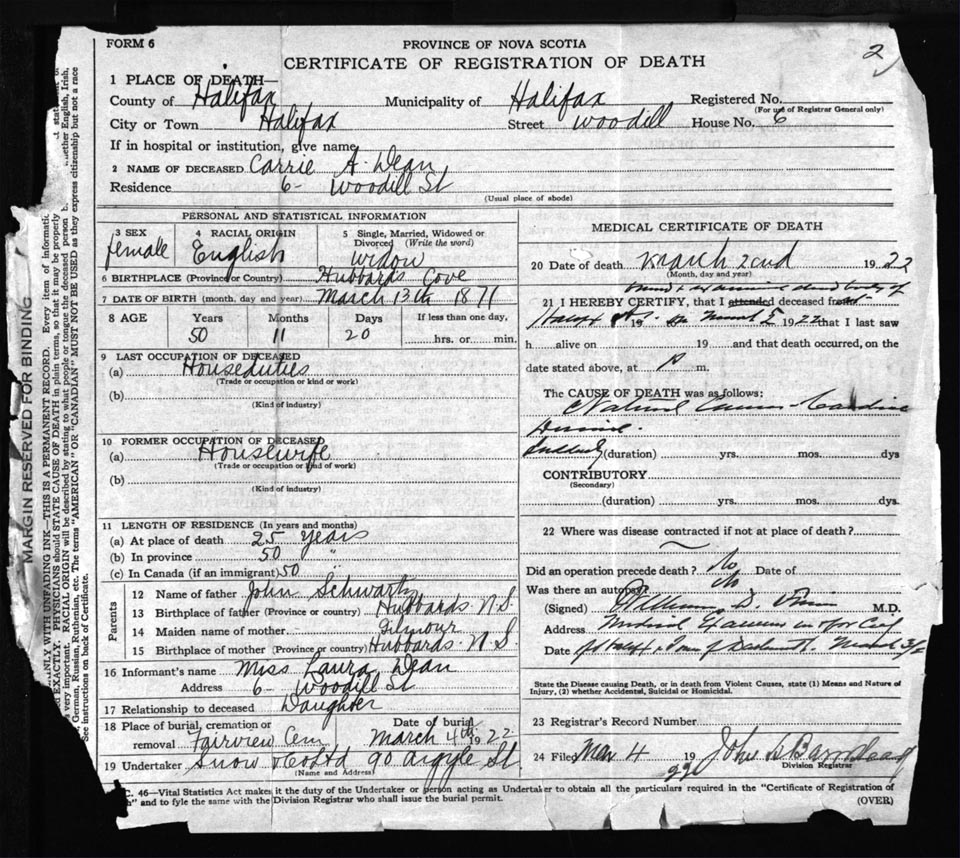 FORM 6
PROVINCE OF NOVA SCOTIA
2
CERTIFICATE OF REGISTRATION OF DEATH
1 PLACE OF DEATH—
County of Halifax Municipality of Halifax Registered No.
(For use of Registrar General only)
City or Town Halifax Street Woodill House No. 6
If in hospital or institution, give name
2 NAME OF DECEASED Carrie A. Dean
Residence 6- Woodill St
(Usual place of abode)
PERSONAL AND STATISTICAL INFORMATION
3 SEX 4 RACIAL ORIGIN 5 Single, Married, Widowed or Divorced (Write the word)
female English Widow
6 BIRTHPLACE (Province or Country) Hubbards Cove
7 DATE OF BIRTH (month, day and year) March 13th 1871
8 AGE Years Months Days If less than one day,
50 11 20 hrs. or min.
9 LAST OCCUPATION OF DECEASED
(a) Houseduties
(Trade or occupation or kind or work)
(b)
(Kind of industry)
10 FORMER OCCUPATION OF DECEASED
(a) Housewife
(Trade or occupation or kind of work)
(b)
(Kind of industry)
11 LENGTH OF RESIDENCE (In years and months)
(a) At place of death 25 years
(b) In province 50 "
(c) In Canada (if an immigrant) 50 "
Parents
12 Name of father John Schwartz
13 Birthplace of father (Province or country) Hubbards N.S.
14 Maiden name of mother Gilmour
15 Birthplace of mother (Province or country) Hubbards N S
16 Informant's name Miss Laura Dean
Address 6- Woodill St
17 Relationship to deceased Daughter
18 Place of burial, cremation or removal Fairview Cem Date of burial March 4th 1922
19 Undertaker Snow & Co Ltd 90 Argyle St.
(Name and Address)
MEDICAL CERTIFICATE OF DEATH
20 Date of death March 2cnd 1922
(Month, day and year)
dead body of
21 I HEREBY CERTIFY, that I attended deceased from
19 March 1922 that I last saw
h alive on 19 and that death occurred, on the
date stated above, at m.
The CAUSE OF DEATH was as follows:
Natural causes Cardiac
Suddenly (duration) yrs. mos. dys
CONTRIBUTORY
(Secondary)
(duration) yrs. mos. dys.
22 Where was disease contracted if not at place of death?
Did an operation precede death? No Date of
Was there an autopsy? No
(Signed) William D. M.D.
Address Medical Examiner
Date March 3/22
State the Disease causing Death, or in death from Violent Causes, state (1) Means and Nature of
Injury, (2) whether Accidental, Suicidal or Homicidal.
23 Registrar's Record Number
24 Filed Mar 4 1922 John
Division Registrar
C. 46—Vital Statistics Act makes it the duty of the Undertaker or person acting as Undertaker to obtain all the particulars required in the "Certificate of Registration of
" and to fyle the same with the Division Registrar who shall issue the burial permit.
(OVER)
MARGIN RESERVED FOR BINDING
WITH UNFADING INK—THIS IS A PERMANENT RECORD. Every item of
EXACTLY. PHYSICIANS should STATE CAUSE OF DEATH in plain terms, so that it may be properly
very important. RACIAL ORIGIN will be described by stating to what people or tongue the deceased person
German, Russian, Ruthenian, etc. The terms "AMERICAN" or "CANADIAN" MUST NOT BE USED as they express citizenship but not a race
See instructions on back of Certificate.